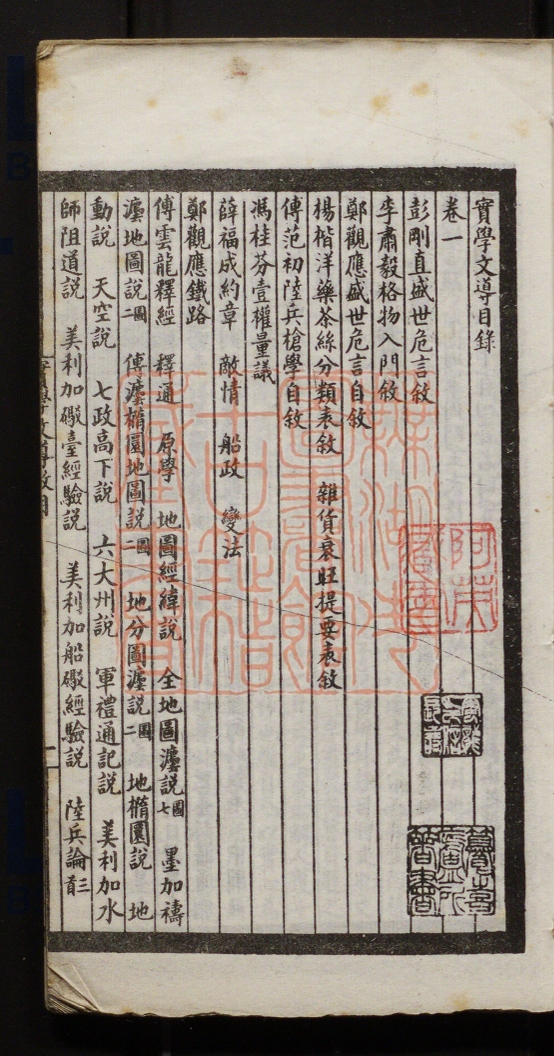 實學文導目錄
卷一
彭剛直盛世危言敘
李肅毅格物入門敘
鄭觀應盛世危言自敘
楊楷洋藥茶絲分類表敘　雜貨衰旺提要表敘
傅范初陸兵槍學自敘
馮桂芬壹權量議
薛福成約章　敵情　船政　變法
鄭觀應鐵路
傅雲龍釋經　釋通　原學　地圖經緯說　全地圖瀍說七圖　墨加禱
瀍地圖說二圖　傅瀍橢圜地圖說一圖　地分圖瀍說二圖　地橢圜說　地
動說　天空說　七政高下說　六大州說　軍禮通記說　美利加水
師阻道說　美利加礮臺經驗說　美利加船礮經驗說　陸兵論三首